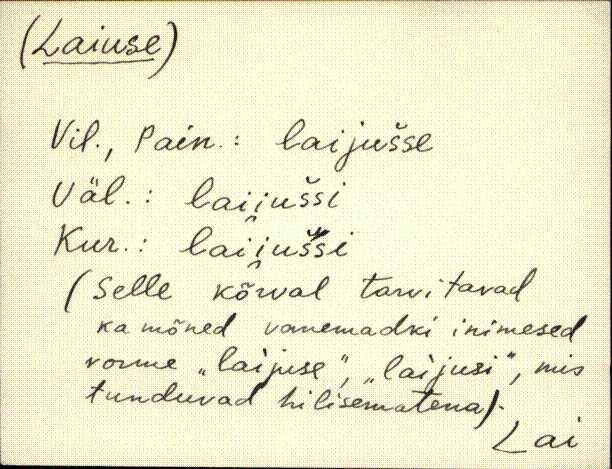 (Laiuse)
Vil., Pain.: laijušse
Väl.: laii̭ušsi
Kur.: laii̭ušsi
(Selle kõrval tarvitavad
ka mõned vanemadki inimesed
vorme „laijuse”, „laijusi”, mis
tunduvad hilisematena).
Lai